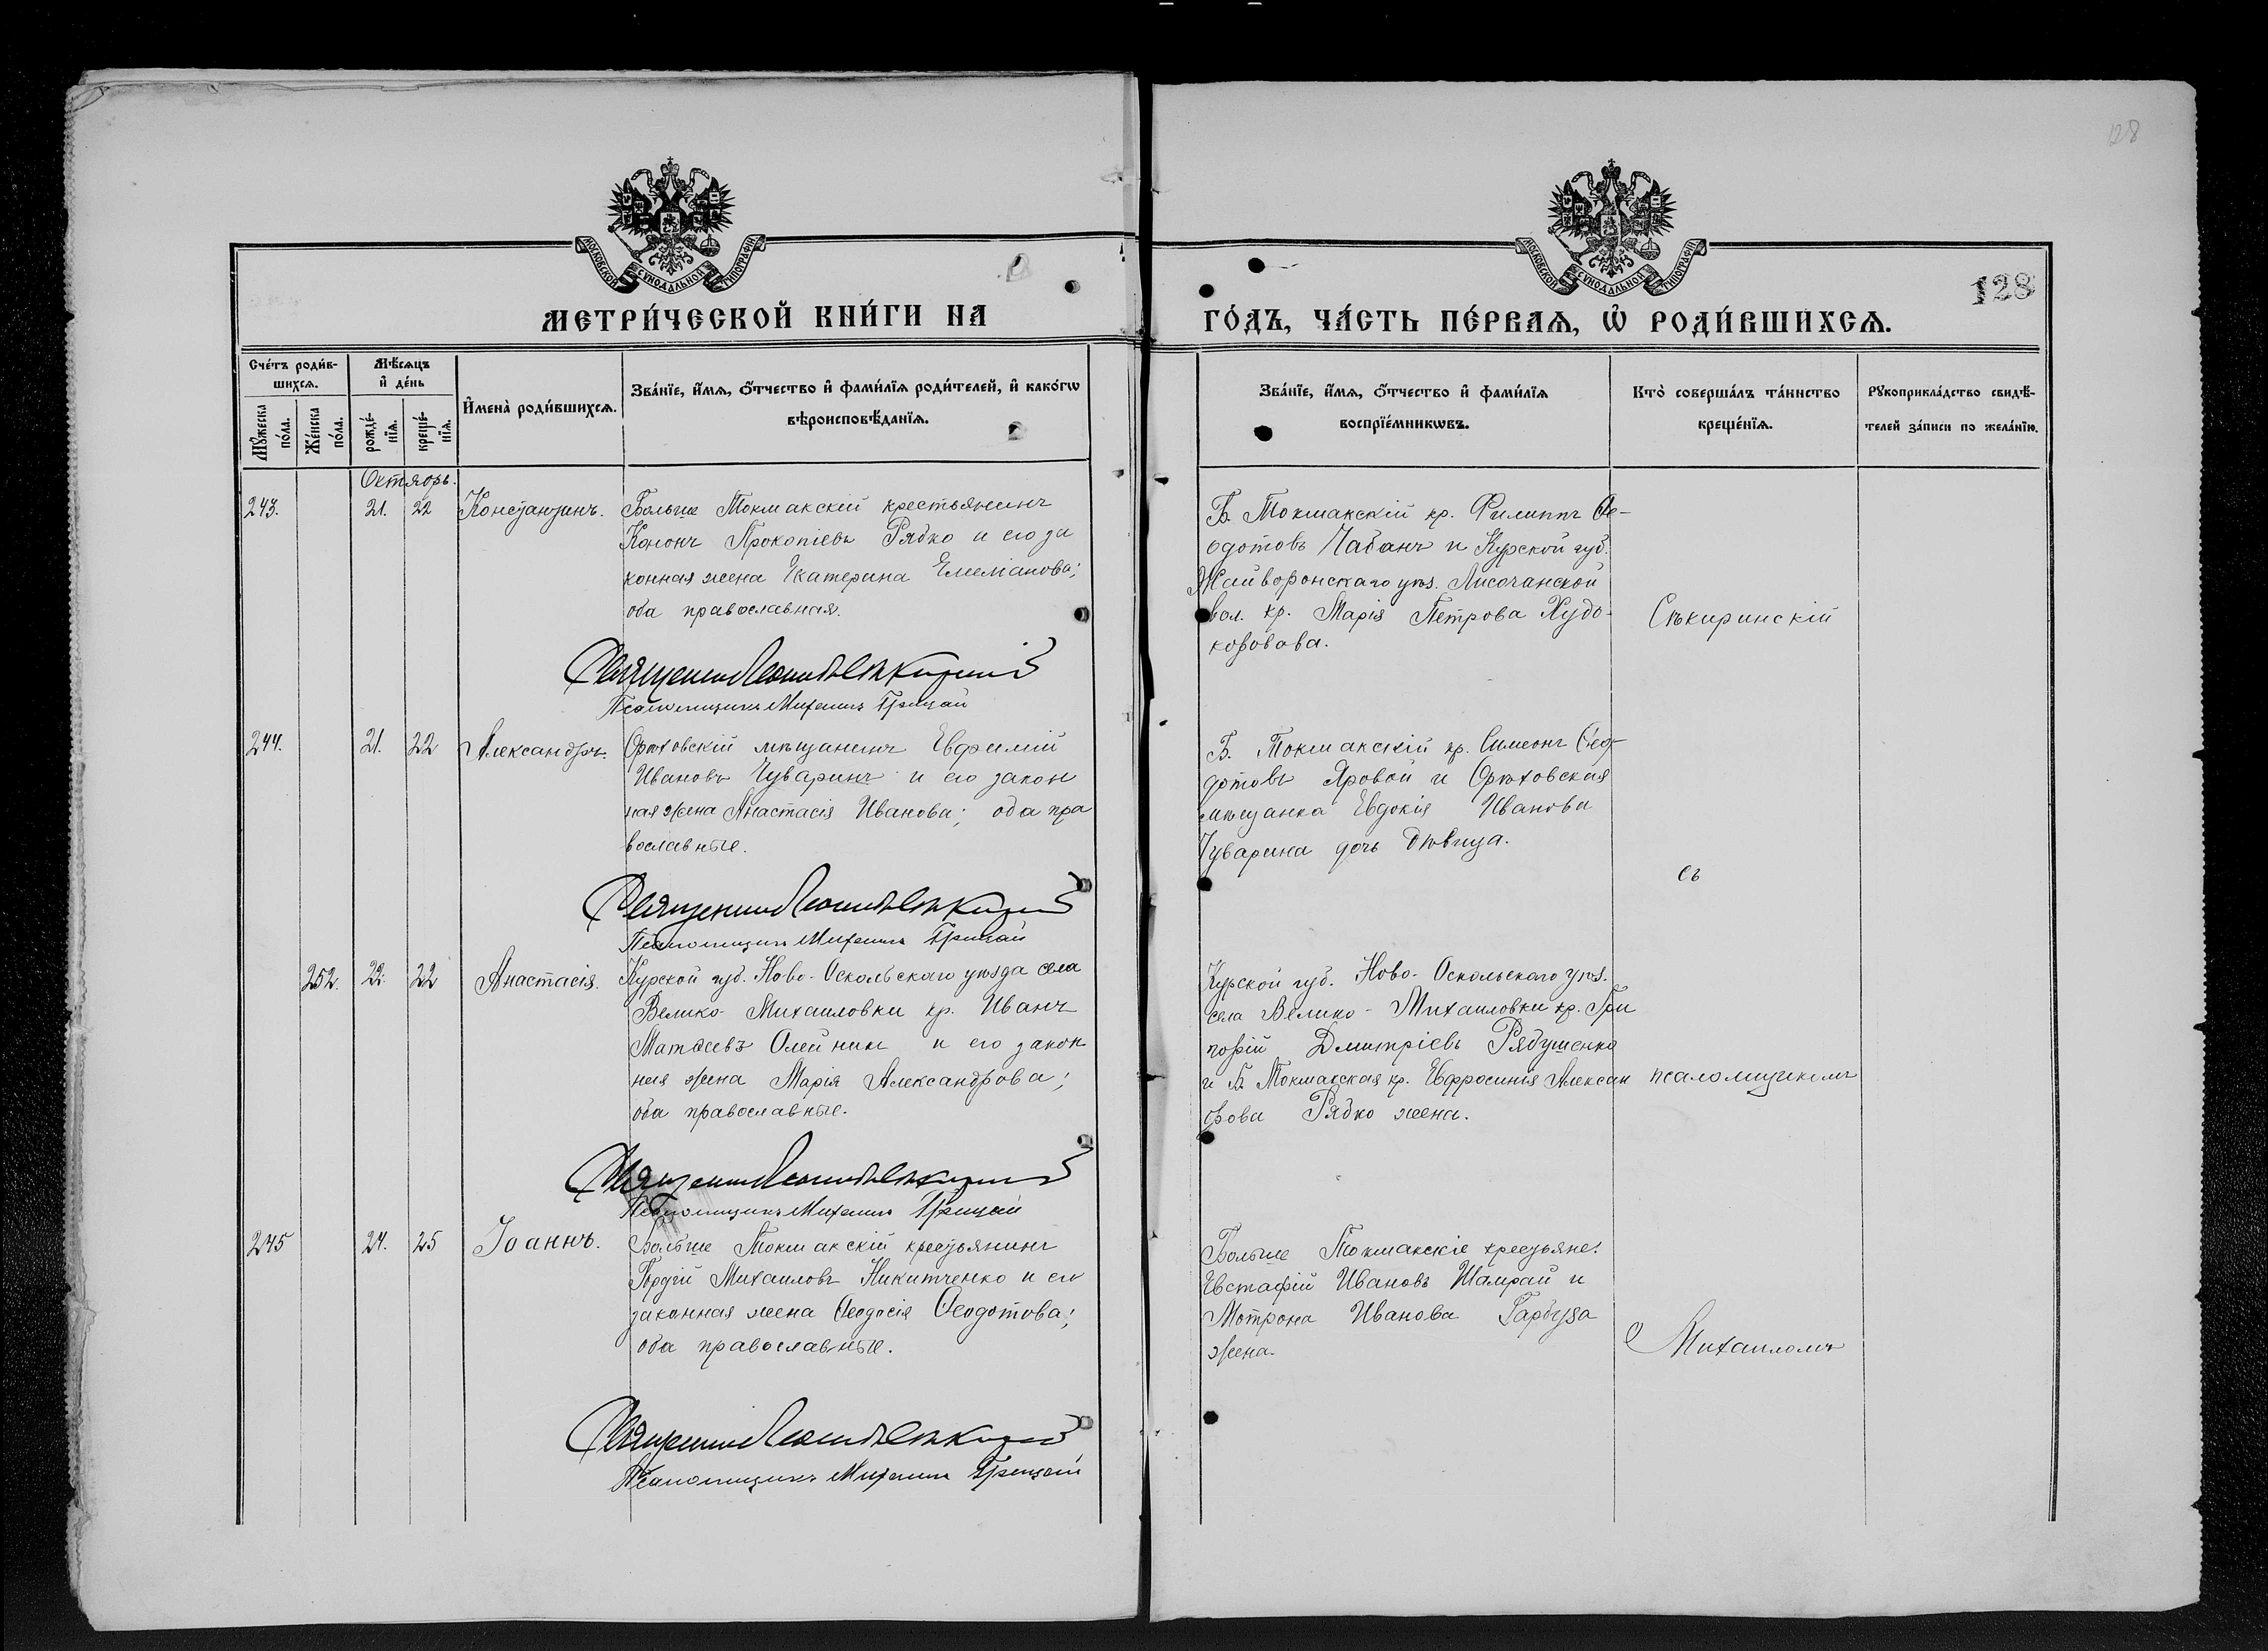 128
МОСКОВСКОЙ СУНОДАЛЬНОЙ ТИПОГРАФІИ
МОСКОВСКОЙ СУНОДАЛЬНОЙ ТИПОГРАФІИ
128
МЕТРИ́ЧЕСКОЙ КНИ́ГИ НА
ГО́ДЪ, ЧА́СТЬ ПЕ́РВАѦ, Ѡ҆ РОДИ́ВШИХСѦ.
Сче́тъ роди́в-
шихсѧ.
Мѣ́сѧцъ
и҆ де́нь
Мꙋ́жеска
по́ла.
Же́нска
по́ла.
рожде́-
нїѧ.
креще́-
нїѧ.
И҆мена̀ роди́вшихсѧ.
Зва́нїе, и҆́мѧ, о҆́тчество и҆ фами́лїѧ роди́телей, и҆ како́гѡ
вѣроисповѣ́данїѧ.
Зва́нїе, и҆́мѧ, о҆́тчество и҆ фами́лїѧ
воспрїе́мникѡвъ.
Кто̀ соверша́лъ та́инство
креще́нїѧ.
Рꙋкоприкла́дство свидѣ́-
телей за́писи по жела́нїю.
Октябрь.
243.
21.
22
Константинъ.
Больше Токмакскій крестьянинъ
Кононъ Прокопіевъ Рядко и его за
конная жена Екатерина Емеліанова;
оба православная.
Священникъ Леонидъ Сѣкиринскій
Псаломщикъ Михаилъ Грицай
Б. Токмакскій кр. Филиппъ Ѳе-
одотовъ Чабанъ и Курской губ.
Хайворонскаго уѣз. Лисочанской
вол. кр. Марія Петрова Худо-
коровова.
Сѣкиринскій
244.
21.
22
Александръ.
Орѣховскій мѣщанинъ Евфимій
Ивановъ Чуваринъ и его закон
ная жена Анастасія Иванова; оба пра
вославные.
Священникъ Леонидъ Сѣкиринскій
Псаломщикъ Михаилъ Грицай
Б. Токмакскій кр. Симеонъ Ѳео-
дотовъ Яровой и Орѣховская
мѣщанка Евдокія Иванова
Чуварина дочь дѣвица.
съ
252.
22.
22
Анастасія.
Курской губ. Ново-Оскольскаго уѣзда села
Велико-Михаиловки кр. Иванъ
Матѳеевъ Олейник и его закон
ная жена Марія Александрова;
оба православные.
Священникъ Леонидъ Сѣкиринскій
Псаломщикъ Михаилъ Грицай
Курской губ. Ново-Оскольскаго уѣз.
села Велико-Михаиловки кр. Гри
горій Дмитріевъ Рябушенко
и Б. Токмакская кр. Евфросинія Алексан
дрова Рядко жена.
псаломщикомъ
245
24.
25
Іоаннъ.
Больше Токмакскій крестьянинъ
Гордій Михаиловъ Никитченко и его
законная жена Ѳеодосія Ѳеодотова;
оба православные.
Священникъ Леонидъ Сѣкиринскій
Псаломщикъ Михаилъ Грицай
Больше Токмакскіе крестьяне:
Евстафій Ивановъ Шамрай и
Мотрона Иванова Гарбуза
жена.
Михаиломъ